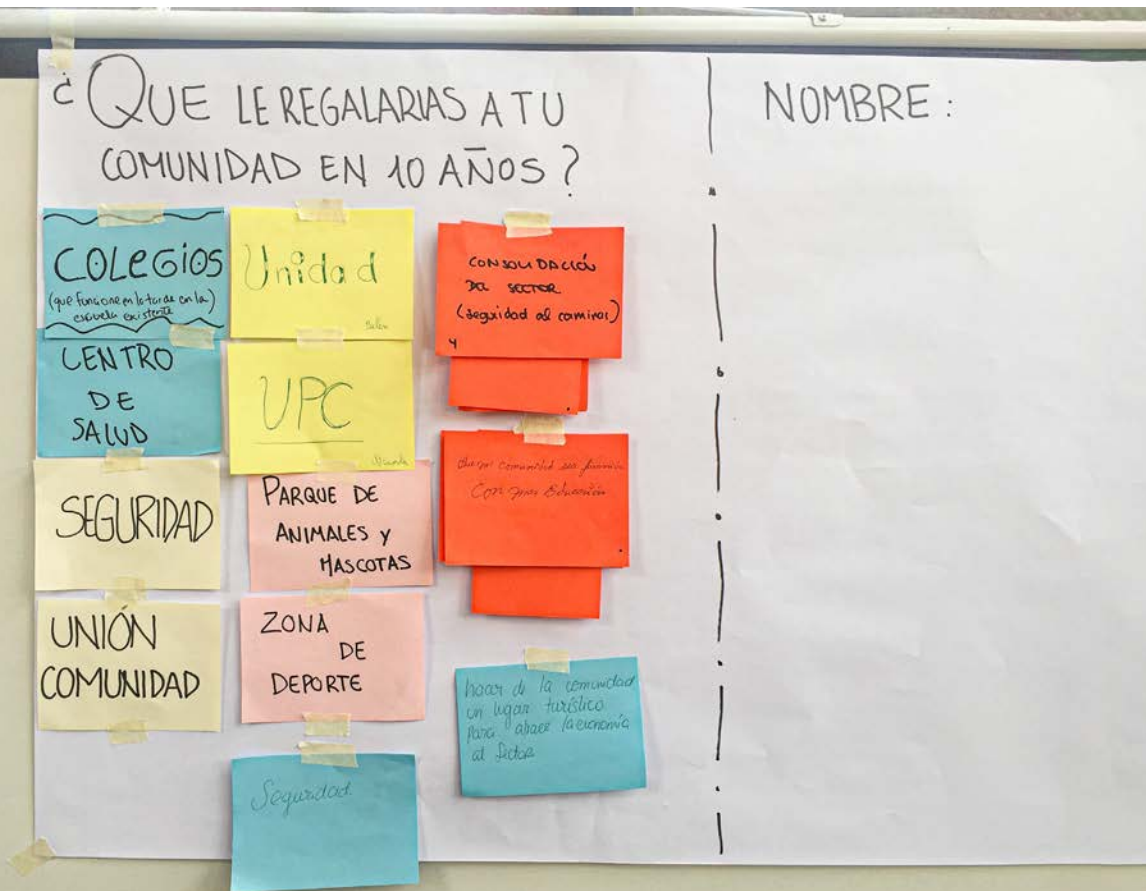 ¿QUE LE REGALARIAS A TU
COMUNIDAD EN 10 AÑOS?
NOMBRE:
COLEGIOS
(que funcione en la tarde en la)
escuela existente
CENTRO
DE
SALUD
SEGURIDAD
UNIÓN
COMUNIDAD
Unidad
UPC
PARQUE DE
ANIMALES Y
MASCOTAS
ZONA
DE
DEPORTE
Seguridad
CONSOLIDACIÓN
DEL SECTOR
(seguridad al caminar)
4
Que mi comunidad sea
Con mas Educación
hacer de la comunidad
un lugar turístico
para atraer la economía
al Sector